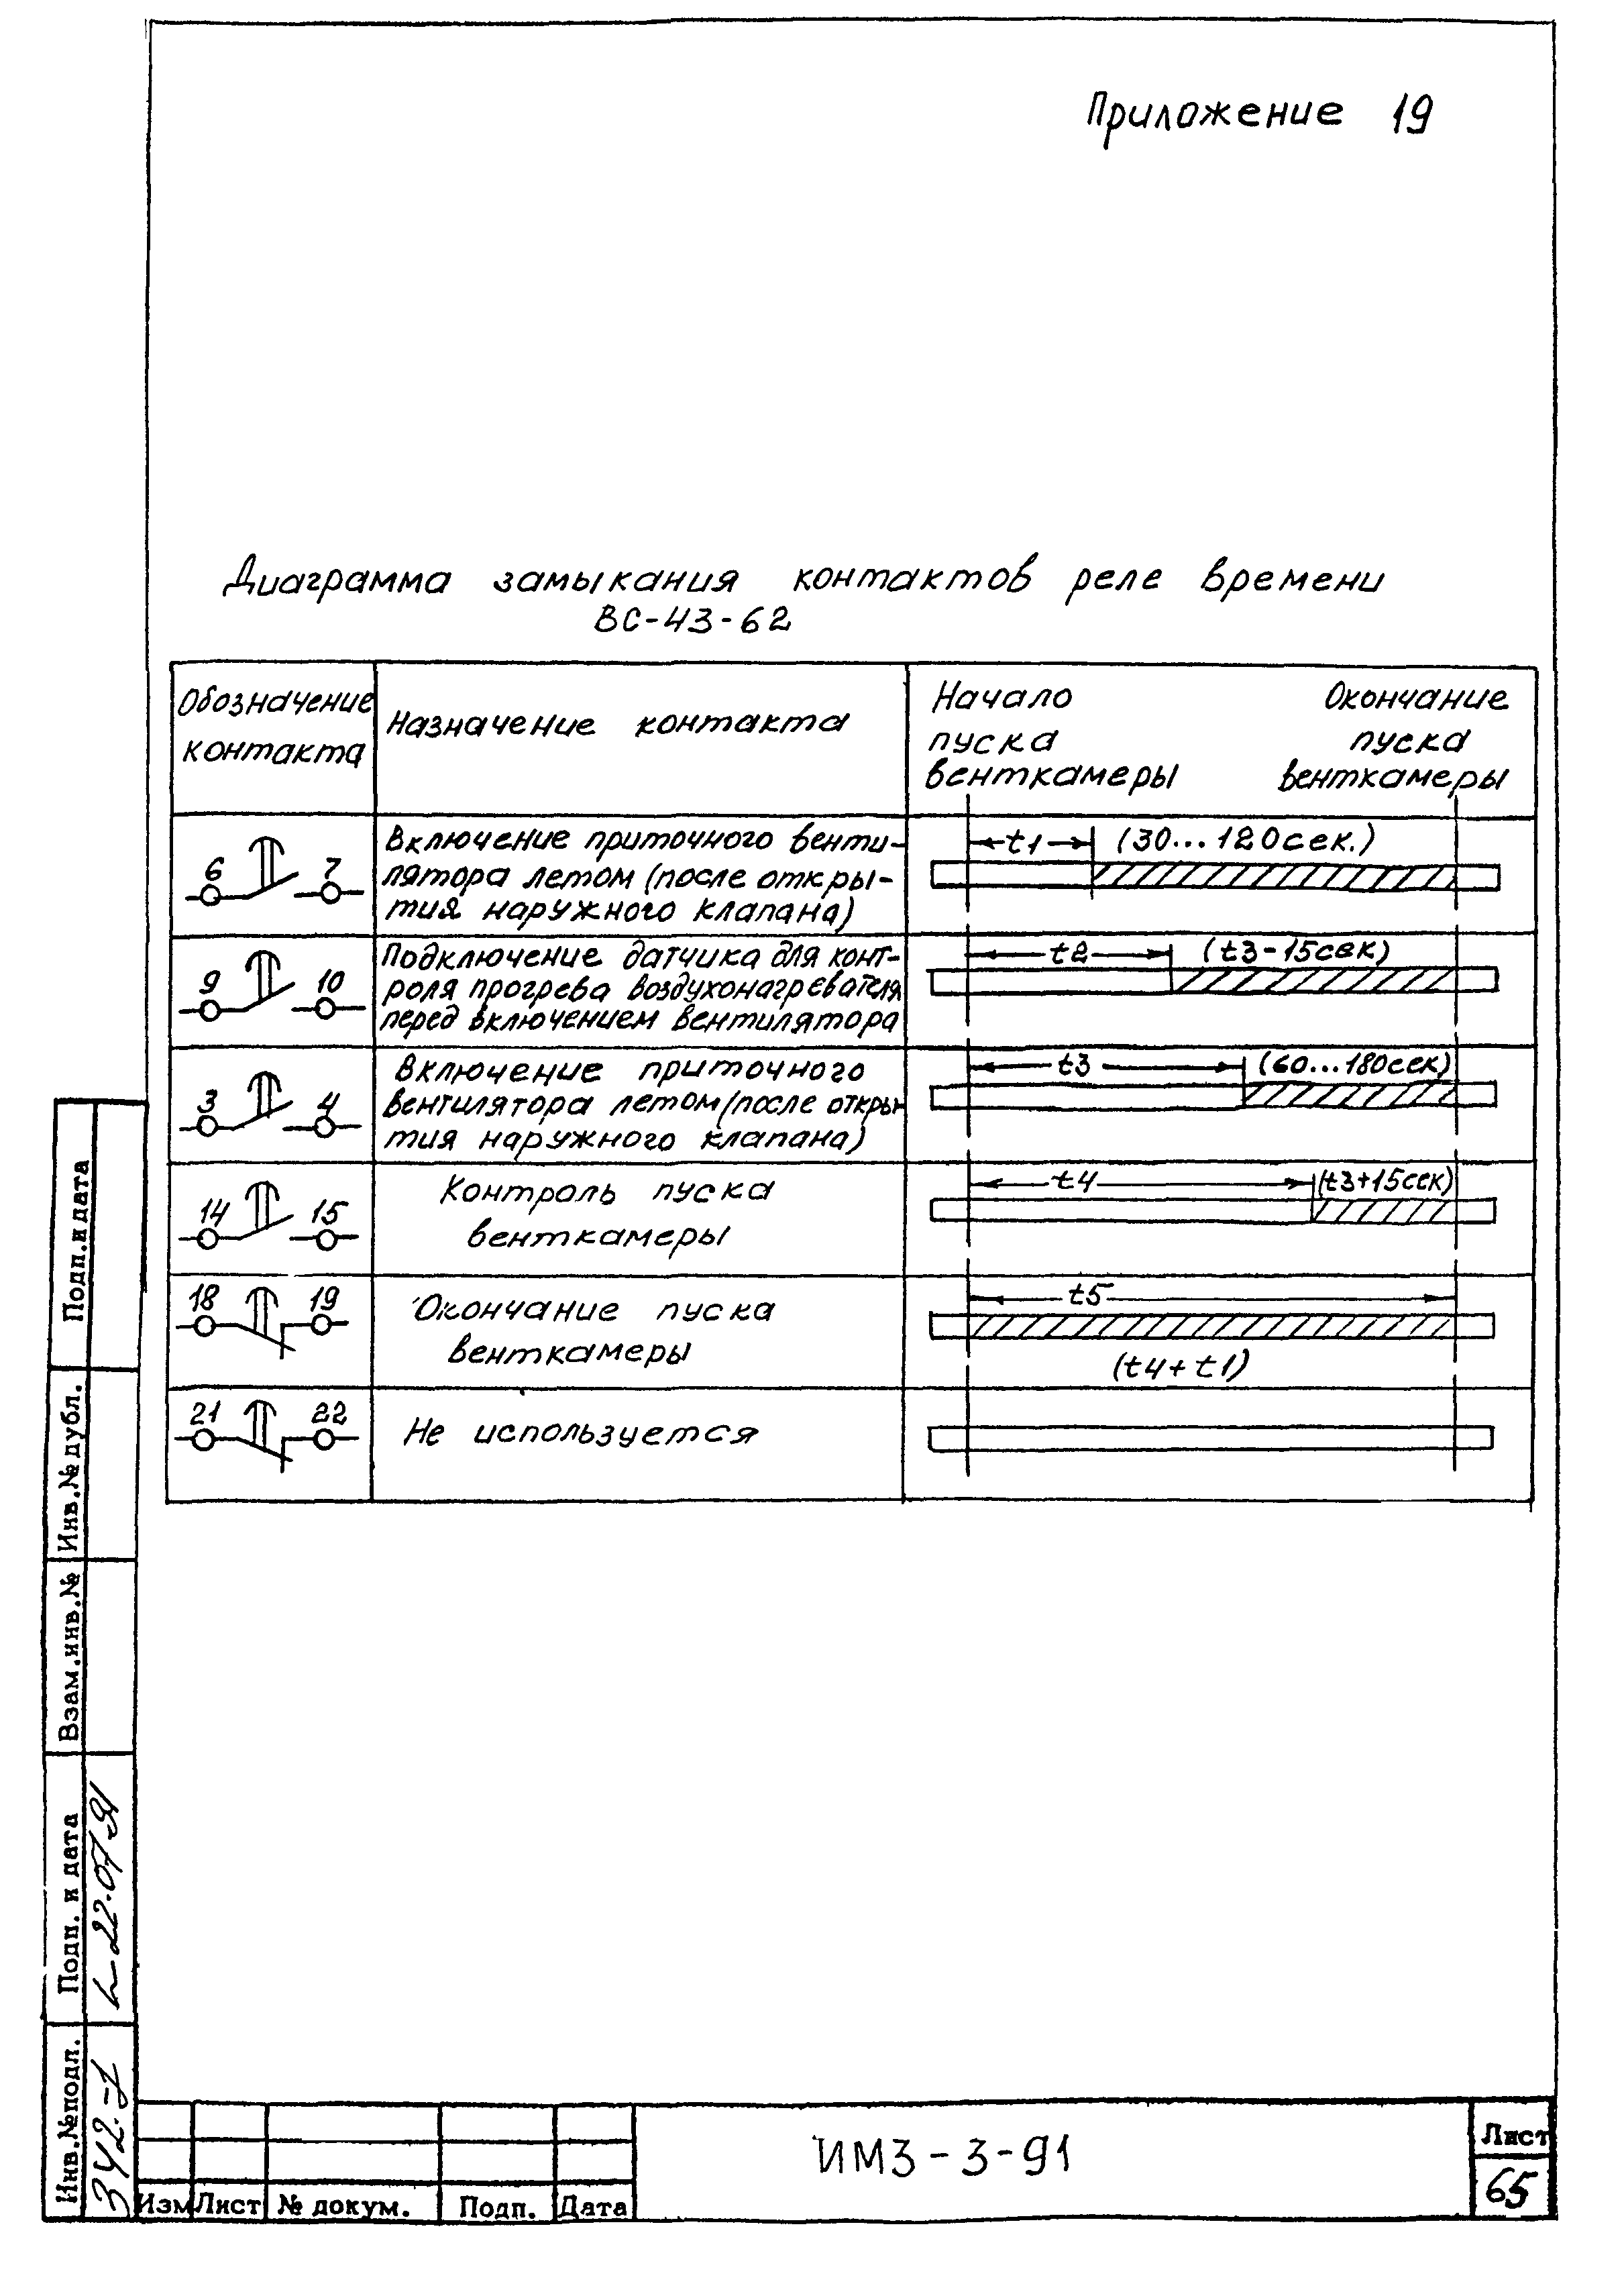 Приложение 19
Диаграмма замыкания контактов реле времени
ВС-43-62
Обозначение
контакта
Назначение контакта
Начало
пуска
венткамеры
Окончание
пуска
венткамеры
6 7
Включение приточного венти-
лятора летом (после откры-
тия наружного клапана)
t1 (30...120сек.)
9 10
Подключение датчика для конт-
роля прогрева воздухонагревателя
перед включением вентилятора
t2 (t3-15сек)
3 4
Включение приточного
вентилятора летом (после откры-
тия наружного клапана)
t3 (60...180сек)
14 15
Контроль пуска
венткамеры
t4 (t3+15сек)
18 19
Окончание пуска
венткамеры
t5
(t4+t1)
21 22
Не используется
Подп.и дата
Инв.№ дубл.
Взам.инв.№
Подп. и дата
22.07.91
Инв.№подл.
342-
Изм Лист № докум. Подп. Дата
ИМ3-3-91
Лист
65